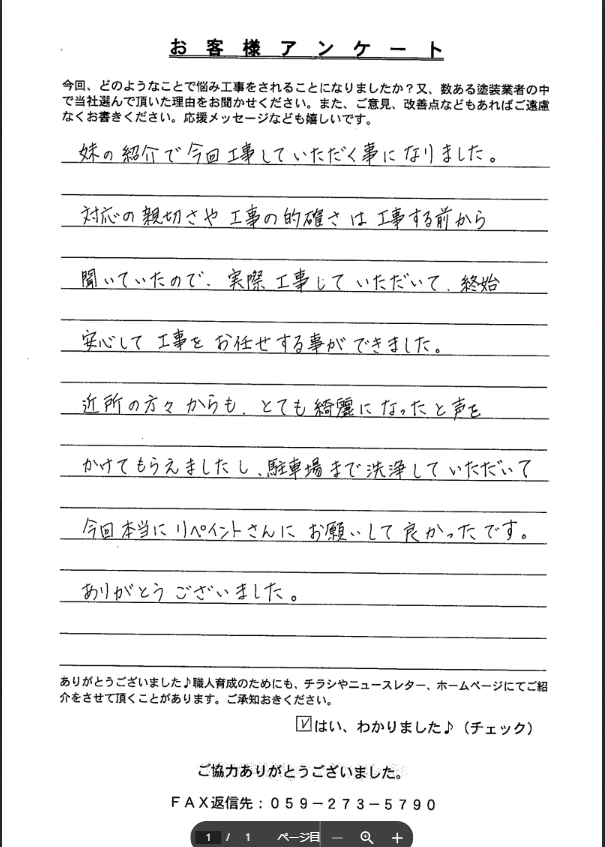 お客様アンケート
今回、どのようなことで悩み工事をされることになりましたか?又、数ある塗装業者の中
で当社選んで頂いた理由をお聞かせください。また、ご意見、改善点などもあればご遠慮
なくお書きください。応援メッセージなども嬉しいです。
妹の紹介で今回工事していただく事になりました。
対応の親切さや工事の的確さは工事する前から
聞いていたので、実際工事していただいて、終始
安心して工事をお任せする事ができました。
近所の方々からも、とても綺麗になったと声を
かけてもらえましたし、駐車場まで洗浄していただいて
今回本当にリペイントさんにお願いして良かったです。
ありがとうございました。
ありがとうございました♪職人育成のためにも、チラシやニュースレター、ホームページにてご紹
介をさせて頂くことがあります。ご承知おきください。
☑はい、わかりました♪(チェック)
ご協力ありがとうございました。
FAX返信先:059-273-5790
1 / 1 ページ目